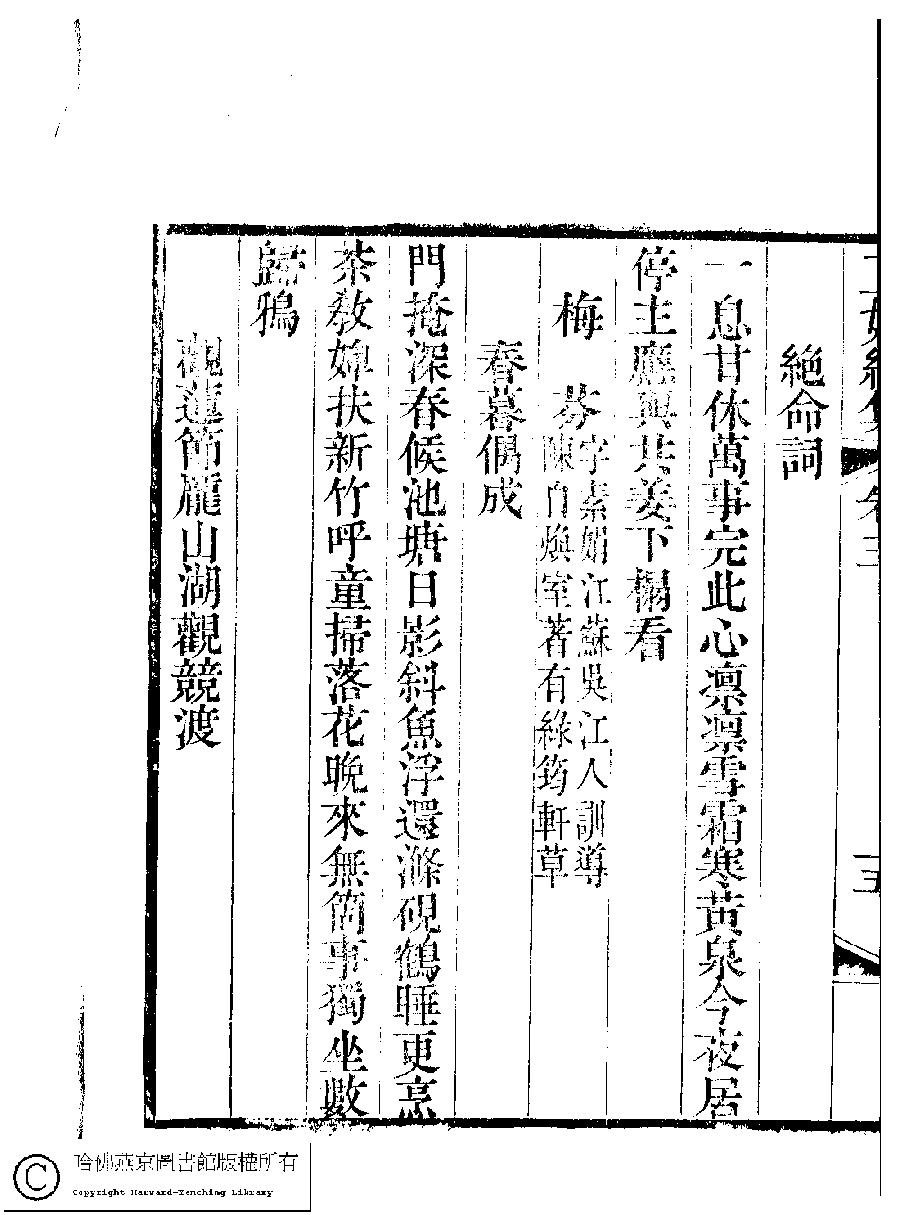 絕命詞
一息甘休萬事完此心凜凜雪霜寒黃泉今夜居
停主應與共姜下榻看
梅　芬
字素娟江蘇吳江人訓導
陳自煥室著有綠筠軒草
春暮偶成
門掩深春候池塘日影斜魚浮還滌硯鶴睡更烹
茶教婢扶新竹呼童掃落花晚來無箇事獨坐數
歸鴉
觀蓮節龐山湖觀競渡
哈佛燕京圖書館版權所有
Copyright Harvard-Yenching Library